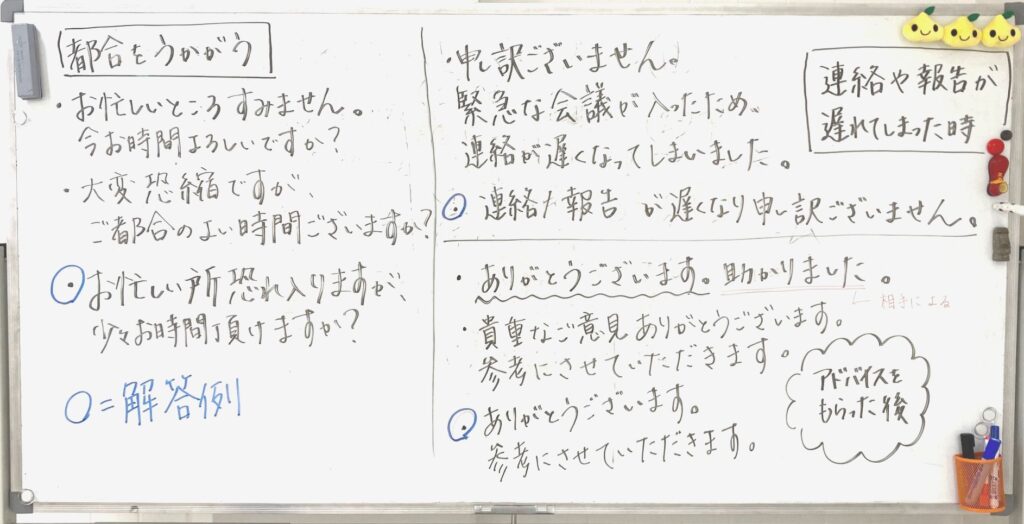 都合をうかがう
・お忙しいところすみません。
今お時間よろしいですか?
・大変恐縮ですが、
ご都合のよい時間ございますか?
・お忙しい所恐れ入りますが、
少々お時間頂けますか?
○=解答例
・申し訳ございません。
緊急な会議が入ったため、
連絡が遅くなってしまいました。
・連絡・報告が遅くなり申し訳ございません。
連絡や報告が
遅れてしまった時
・ありがとうございます。助かりました。
相手による
・貴重なご意見ありがとうございます。
参考にさせていただきます。
・ありがとうございます。
参考にさせていただきます。
アドバイスを
もらった後